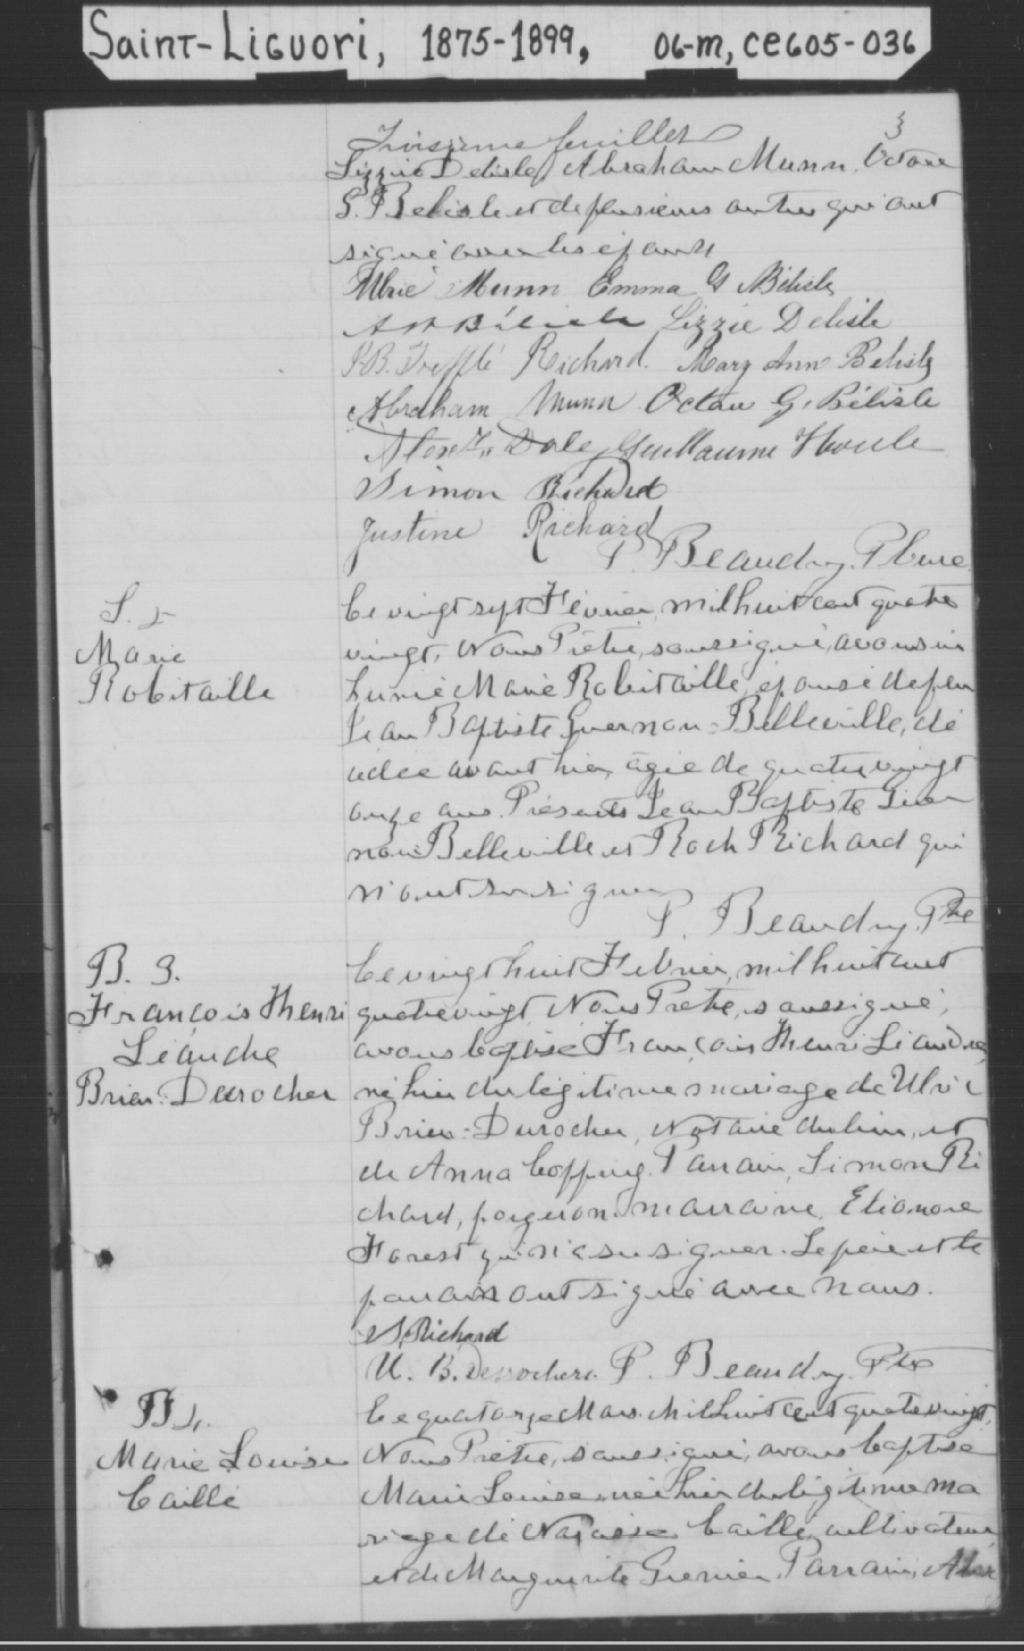 Saint-Liguori, 1875-1899, 06-m, CE605-036
3
Troisième feuillet
Lizzie Delisle, Abraham Munn, Octave
G. Belisle et de plusieurs autres qui ont
signé avec les époux
Ulric Munn Emma G Bélisle
A Bélisle Lizzie Delisle
J.B. Trefflé Richard. Mary Ann Belisle
Abraham Munn Octave G. Bélisle
Daley Guillaume Houle
Simon Richard
Justine Richard
P. Beaudry Ptre Cure
S. 2
Marie
Robitaille
Ce vingt sept Février, mil huit cent quatre
vingt, Nous Prêtre, soussigné, avons in
humé Marie Robitaille, épouse de feu
Jean Baptiste Guernon-Belleville, dé
cédée avant hier, agée de quatre vingt
onze ans. Présents Jean Baptiste Guer
non Belleville et Roch Richard qui
n'ont su signer
P. Beaudry, Ptre
B. 3.
François Henri
Léandre
Brien-Durocher
Ce vingt huit Février, mil huit cent
quatre vingt, Nous Prêtre, soussigné,
avons baptisé François Henri Léandre
né hier du légitime mariage de Ulric
Brien-Durocher, Notaire du lieu, et
de Anna Copping. Parrain, Simon Ri
chard, forgeron marraine Eléonore
Forest qui n'a su signer. Le père et le
parrain ont signé avec nous.
S. Richard
U. B. Desrochers P. Beaudry, Ptre
B4.
Marie Louise
Caillé
Ce quatorze Mars, mil huit cent quatre vingt,
Nous Prêtre, soussigné, avons baptisé
Marie Louise née hier du légitime ma
riage de Narcisse Caillé cultivateur
et de Marguerite Grenier. Parrain,